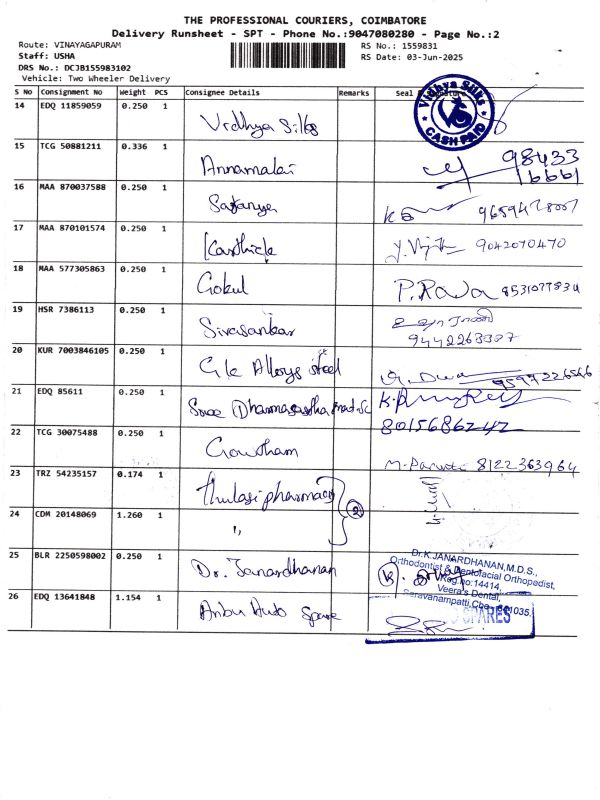 THE PROFESSIONAL COURIERS, COIMBATORE
Delivery Runsheet - SPT - Phone No.:9047080280 - Page No.:2
Route: VINAYAGAPURAM RS No.: 1559831
Staff: USHA RS Date: 03-Jun-2025
DRS No.: DCJB155983102
Vehicle: Two Wheeler Delivery
S No Consignment No Weight PCS Consignee Details Remarks Seal &
Vidhya Silks
CASH PAID
14 EDQ 11859059 0.250 1 Vidhya Silks
15 TCG 50881211 0.336 1 Annamalai 98433
16661
16 MAA 870037588 0.250 1
17 MAA 870101574 0.250 1 Karthick 9042070470
18 MAA 577305863 0.250 1 Gokul P. Raja
19 HSR 7386113 0.250 1 Sivasankar
20 KUR 7003846105 0.250 1 Gk Alloys steel 9597226566
21 EDQ 85611 0.250 1 Sree Dharmasastha
8015686242
22 TCG 30075488 0.250 1 Gowtham 8122363964
23 TRZ 54235157 0.174 1 Thulasi pharmacy
2
24 CDM 20148069 1.260 1 "
25 BLR 2250598002 0.250 1 Dr. Janardhanan
Dr.K.JANARDHANAN,M.D.S.,
Orthodontist & Dentofacial Orthopedist,
Reg.no:14414,
Veera's Dental,
Saravanampatti,Cbe 641035.
26 EDQ 13641848 1.154 1 Anbu Auto Spare
SPARES